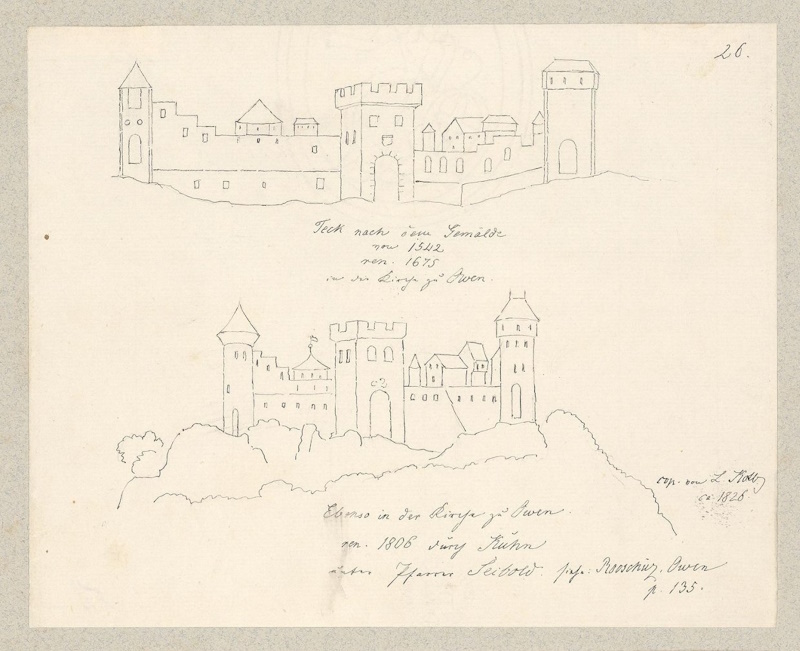 26.
Teck nach dem Gemälde
von 1542
ren. 1675
in der Kirche zu Owen.
cop. von L. Kolb
ca 1826
Ebenso in der Kirche zu Owen.
ren. 1806 durch Kühn
unter Pfarrer Seibold. siehe: Rooschüz, Owen
p. 135.